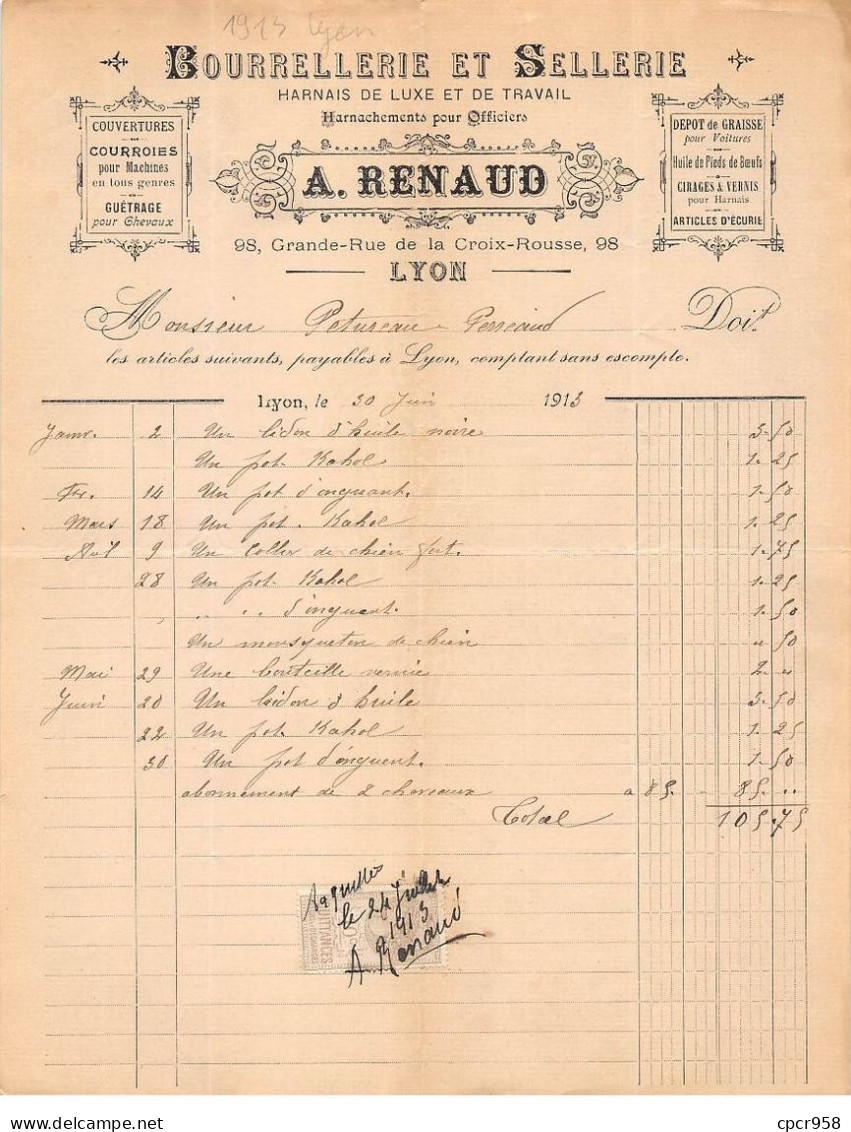 1913 Lyon
BOURRELLERIE ET SELLERIE
HARNAIS DE LUXE ET DE TRAVAIL
Harnachements pour Officiers
A. RENAUD
98, Grande-Rue de la Croix-Rousse, 98
LYON
COUVERTURES
COURROIES
pour Machines
en tous genres
GUÊTRAGE
pour Chevaux
DEPOT de GRAISSE
pour Voitures
Huile de Pieds de Bœufs
CIRAGES & VERNIS
pour Harnais
ARTICLES D'ÉCURIE
Monsieur Petureau - Perreaud Doit
les articles suivants, payables à Lyon, comptant sans escompte.
Lyon, le 30 Juin 1913
Janv. 2 Un bidon d'huile noire 3.50
Un pot Kahol 1.25
Fév. 14 Un pot d'onguant. 1.50
Mars 18 Un pot. Kahol 1.25
Avil 9 Un collier de chien fort. 1.75
28 Un pot Kahol 1.25
" " d'onguent. 1.50
Un mousqueton de chien " 50
Mai 29 Une bouteille vernie 2 "
Juin 20 Un bidon d'huile 3.50
22 Un pot. Kahol 1.25
30 Un pot d'onguent. 1.50
abonnement de 2 chevaux a 85. 85. ..
Total 105.75
le 24 Juillet
1913
A Renaud
QUITTANCES
cpcr958